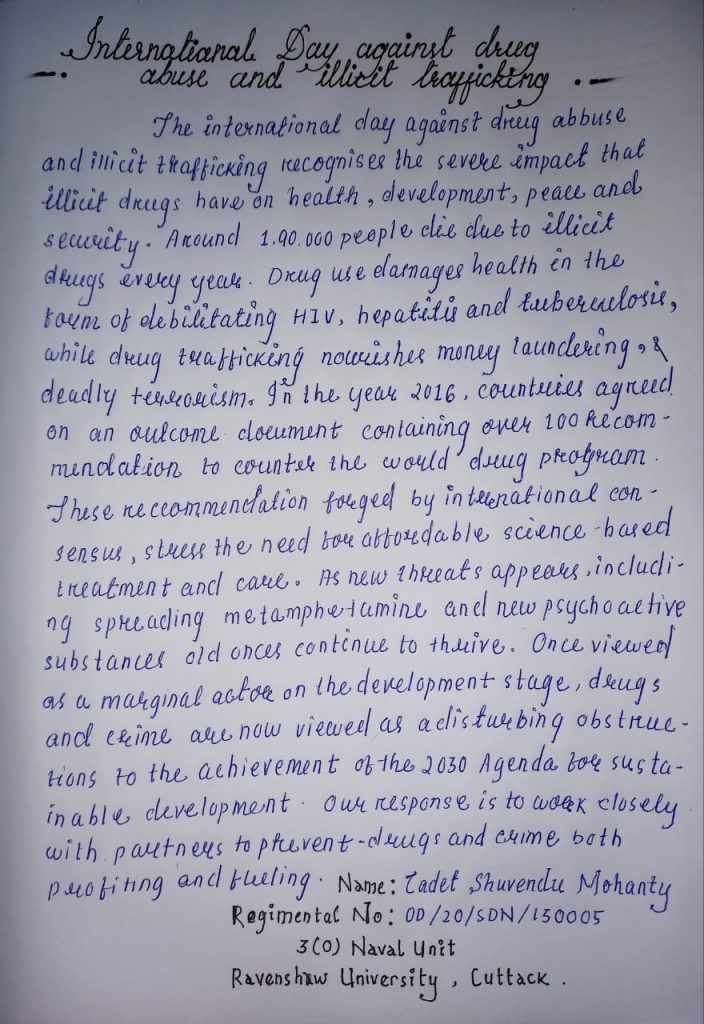 International Day against drug
abuse and illicit trafficking
The international day against drug abbuse
and illicit trafficking recognises the severe impact that
illicit drugs have on health, development, peace and
security. Around 1.90.000 people die due to illicit
drugs every year. Drug use damages health in the
form of debilitating HIV, hepatitis and tuberculosis,
while drug trafficking nourishes money laundering, &
deadly terrorism. In the year 2016, countries agreed
on an outcome document containing over 100 Recom-
mendation to counter the world drug program.
These reccommendation forged by international con-
sensus, stress the need for affordable science-based
treatment and care. As new threats appears, includi-
ng spreading metamphetamine and new psychoactive
substances old onces continue to thrive. Once viewed
as a marginal actor on the development stage, drugs
and crime are now viewed as a disturbing obstruc-
tions to the achievement of the 2030 Agenda for susta-
inable development. Our response is to work closely
with partners to prevent-drugs and crime both
profiting and fueling. Name: Cadet Shuvendu Mohanty
Regimental No: OD/20/SDN/130005
3(O) Naval Unit
Ravenshaw University, Cuttack.